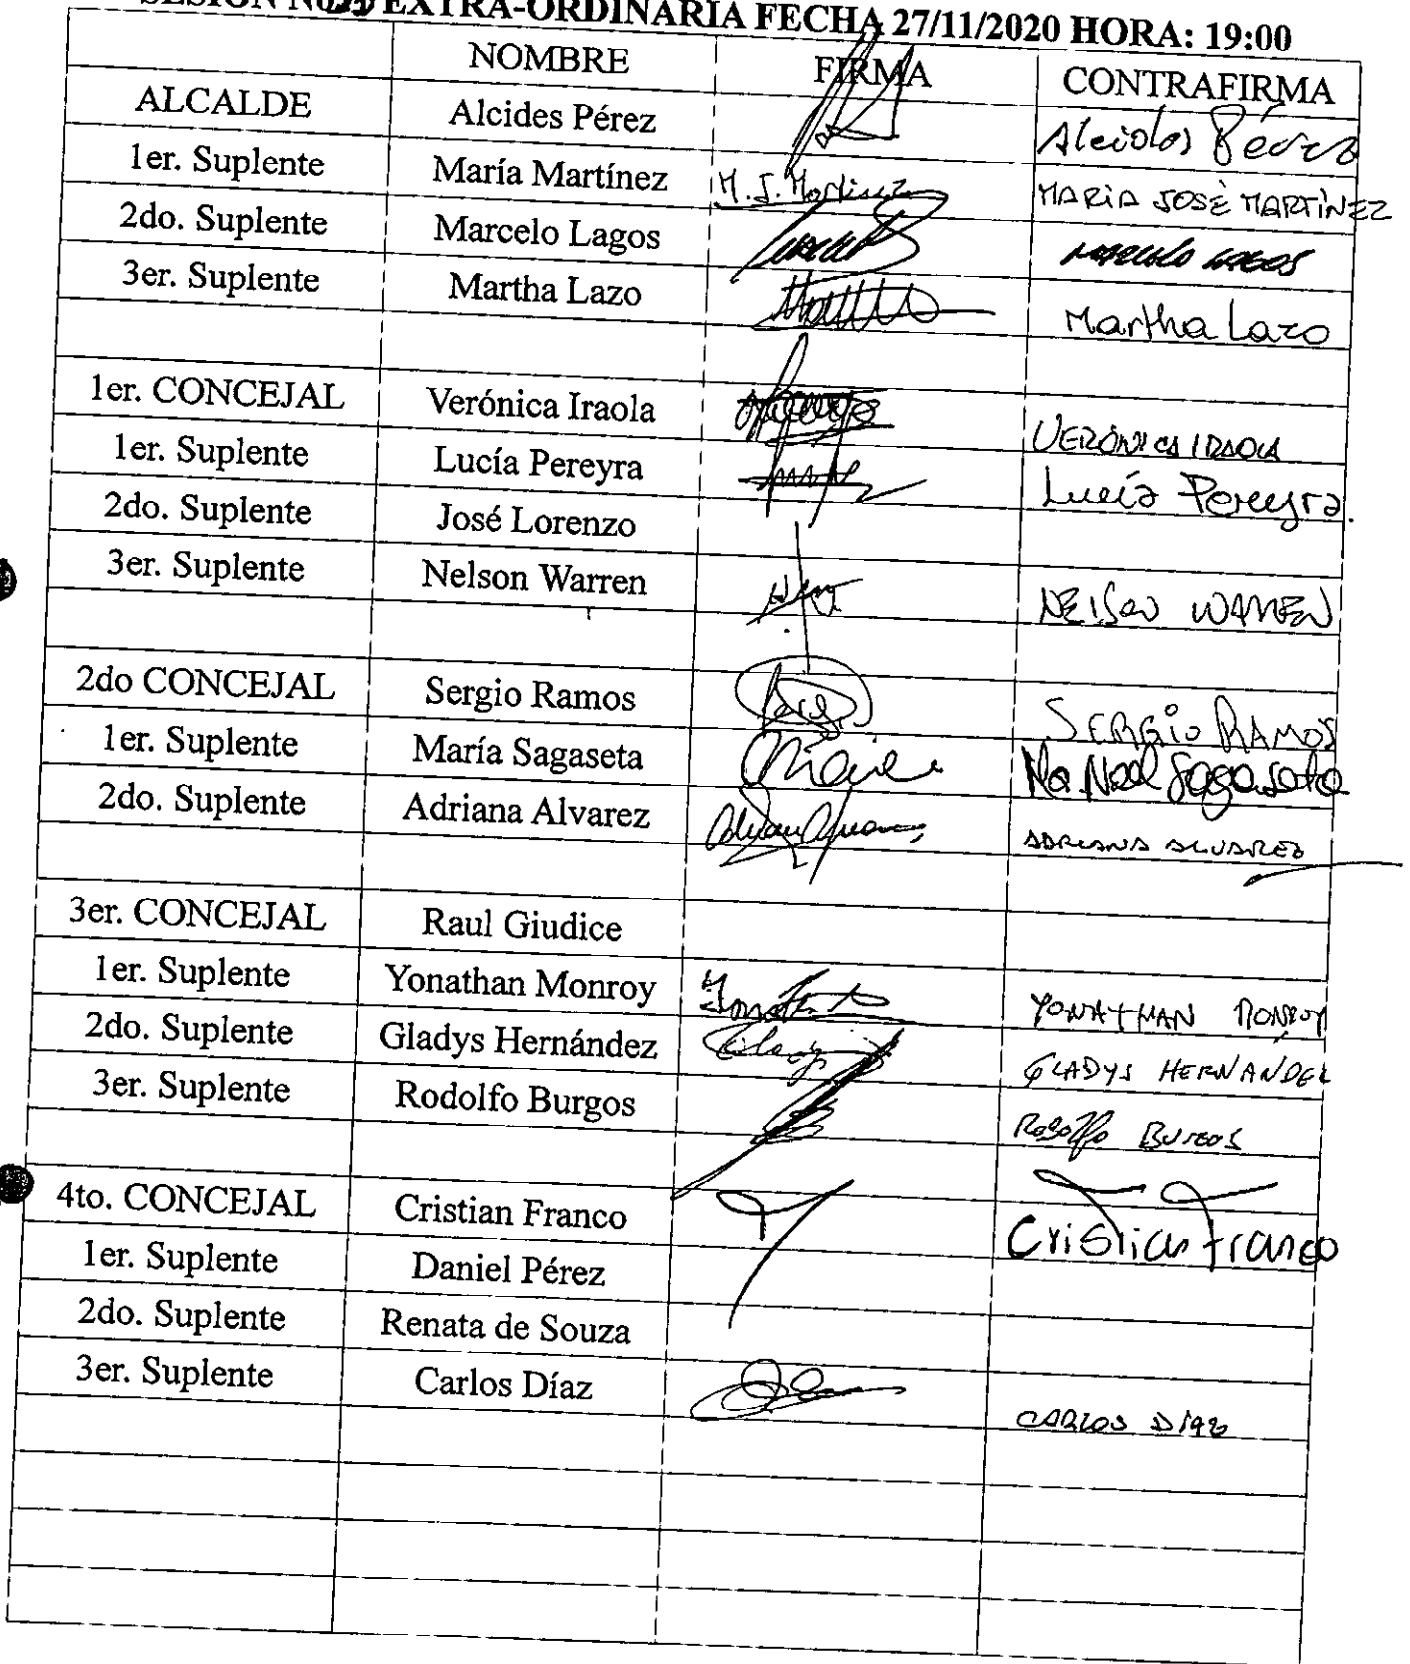 SESIÓN No. EXTRA-ORDINARIA FECHA 27/11/2020 HORA: 19:00
NOMBRE FIRMA CONTRAFIRMA
ALCALDE Alcides Pérez Alcides Pérez
1er. Suplente María Martínez M. J. Martínez MARIA JOSÉ MARTÍNEZ
2do. Suplente Marcelo Lagos MARCELO LAGOS
3er. Suplente Martha Lazo Martha Lazo
1er. CONCEJAL Verónica Iraola VERÓNICA IRAOLA
1er. Suplente Lucía Pereyra Lucía Pereyra.
2do. Suplente José Lorenzo
3er. Suplente Nelson Warren NELSON WARREN
2do CONCEJAL Sergio Ramos SERGIO RAMOS
1er. Suplente María Sagaseta Ma Noel Sagaseta
2do. Suplente Adriana Alvarez ADRIANA ALVAREZ
3er. CONCEJAL Raul Giudice
1er. Suplente Yonathan Monroy YONATHAN MONROY
2do. Suplente Gladys Hernández GLADYS HERNANDEZ
3er. Suplente Rodolfo Burgos Rodolfo BURGOS
4to. CONCEJAL Cristian Franco Cristian Franco
1er. Suplente Daniel Pérez
2do. Suplente Renata de Souza
3er. Suplente Carlos Díaz CARLOS DÍAZ